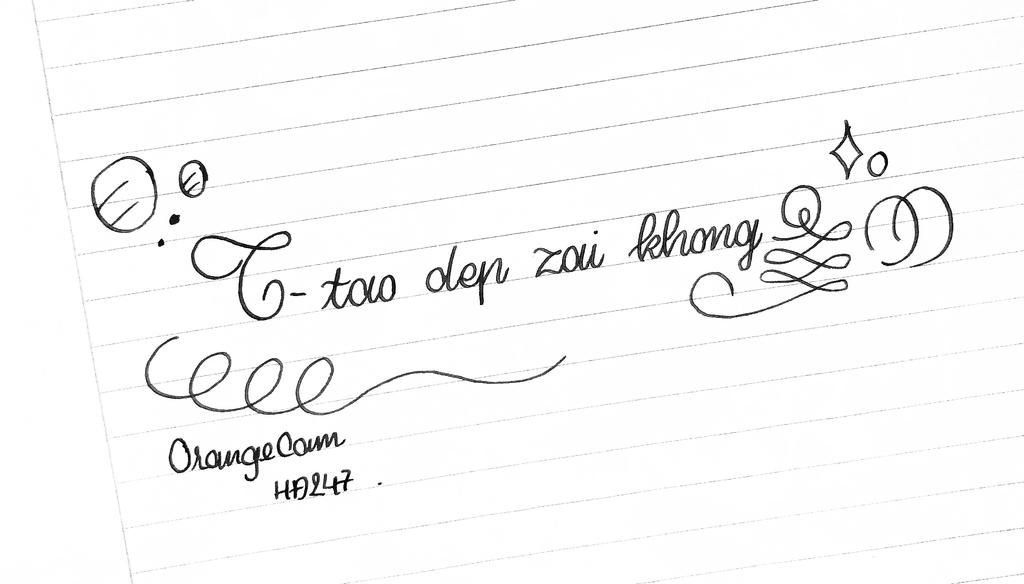 T-tao dep zai khong
OrangeCam
HĐ247